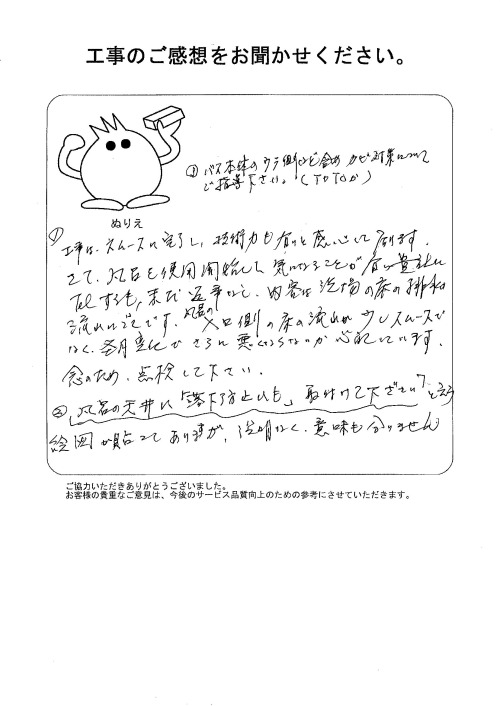 工事のご感想をお聞かせください。
③ バス本体のウラ側など含め カビ対策について
ご指導下さい。(TOTOか)
ぬりえ
① 工事は、スムースに完了し、技術力も有りと感心して居ります。
さて、風呂を使用開始して、気になることが有り貴社に
Telするも、未だ返事なし、内容は洗場の床の排水
流れについてです。風呂の入口側の床の流れが少しスムースで
なく、年月変化でさらに悪くならないか心配しています。
念のため、点検して下さい。
② 風呂の天井に「落下防止いも」取付けて下さいと言う
絵図が貼ってありますが、説明なく、意味も分りません
ご協力いただきありがとうございました。
お客様の貴重なご意見は、今後のサービス品質向上のための参考にさせていただきます。